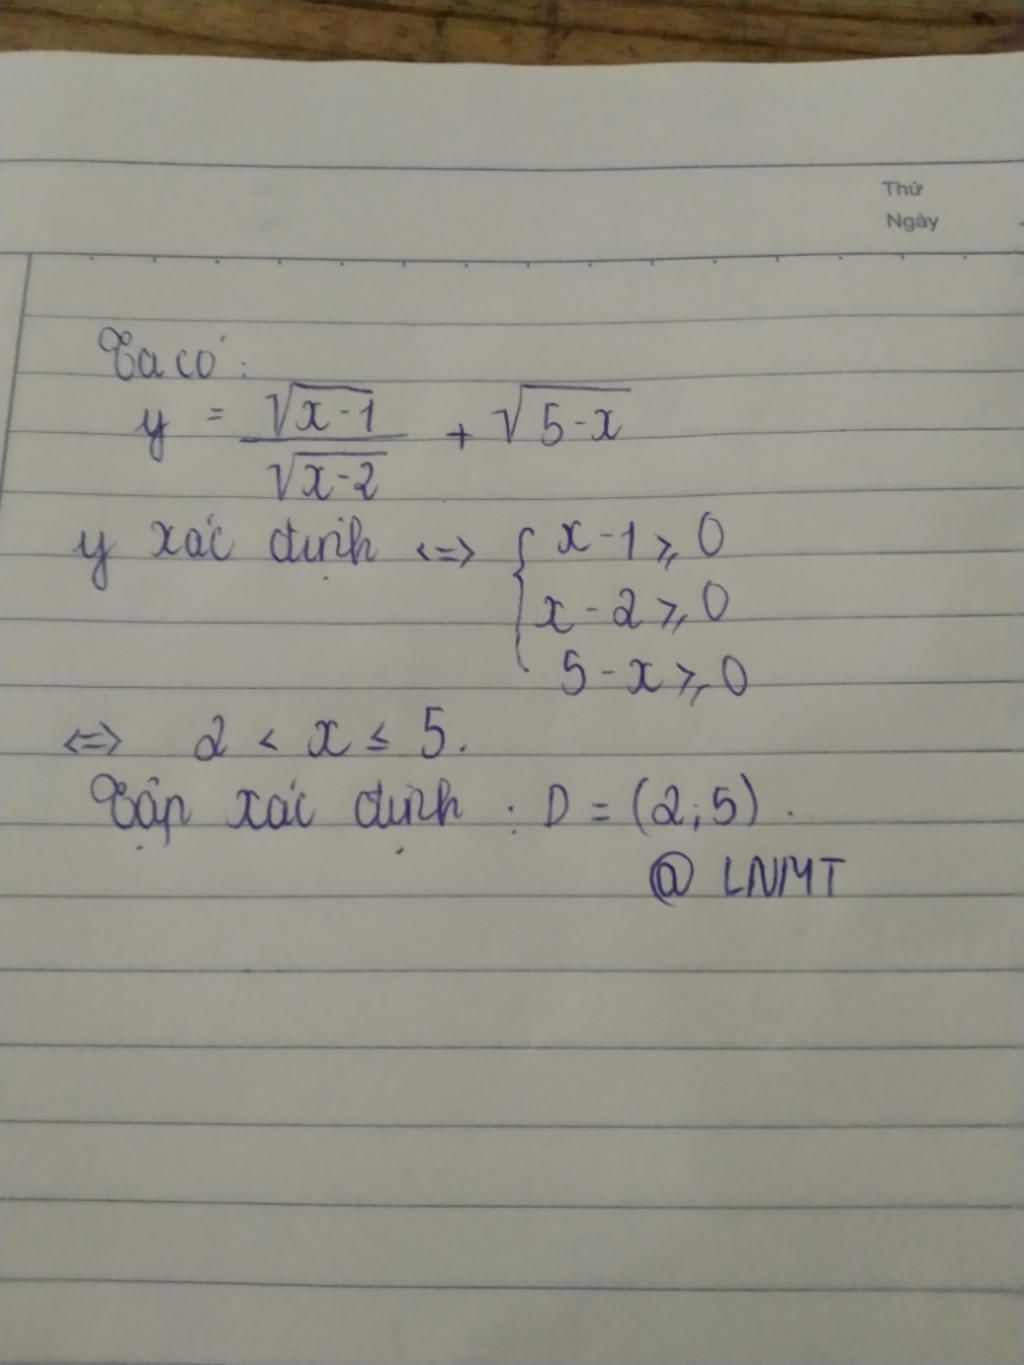 Thứ
Ngày
Ta có:
y = \frac{\sqrt{x-1}}{\sqrt{x-2}} + \sqrt{5-x}
y xác định <=> { x - 1 ≥ 0
x - 2 ≥ 0
5 - x ≥ 0
<=> 2 < x ≤ 5.
Tập xác định : D = (2;5).
@ LNMT